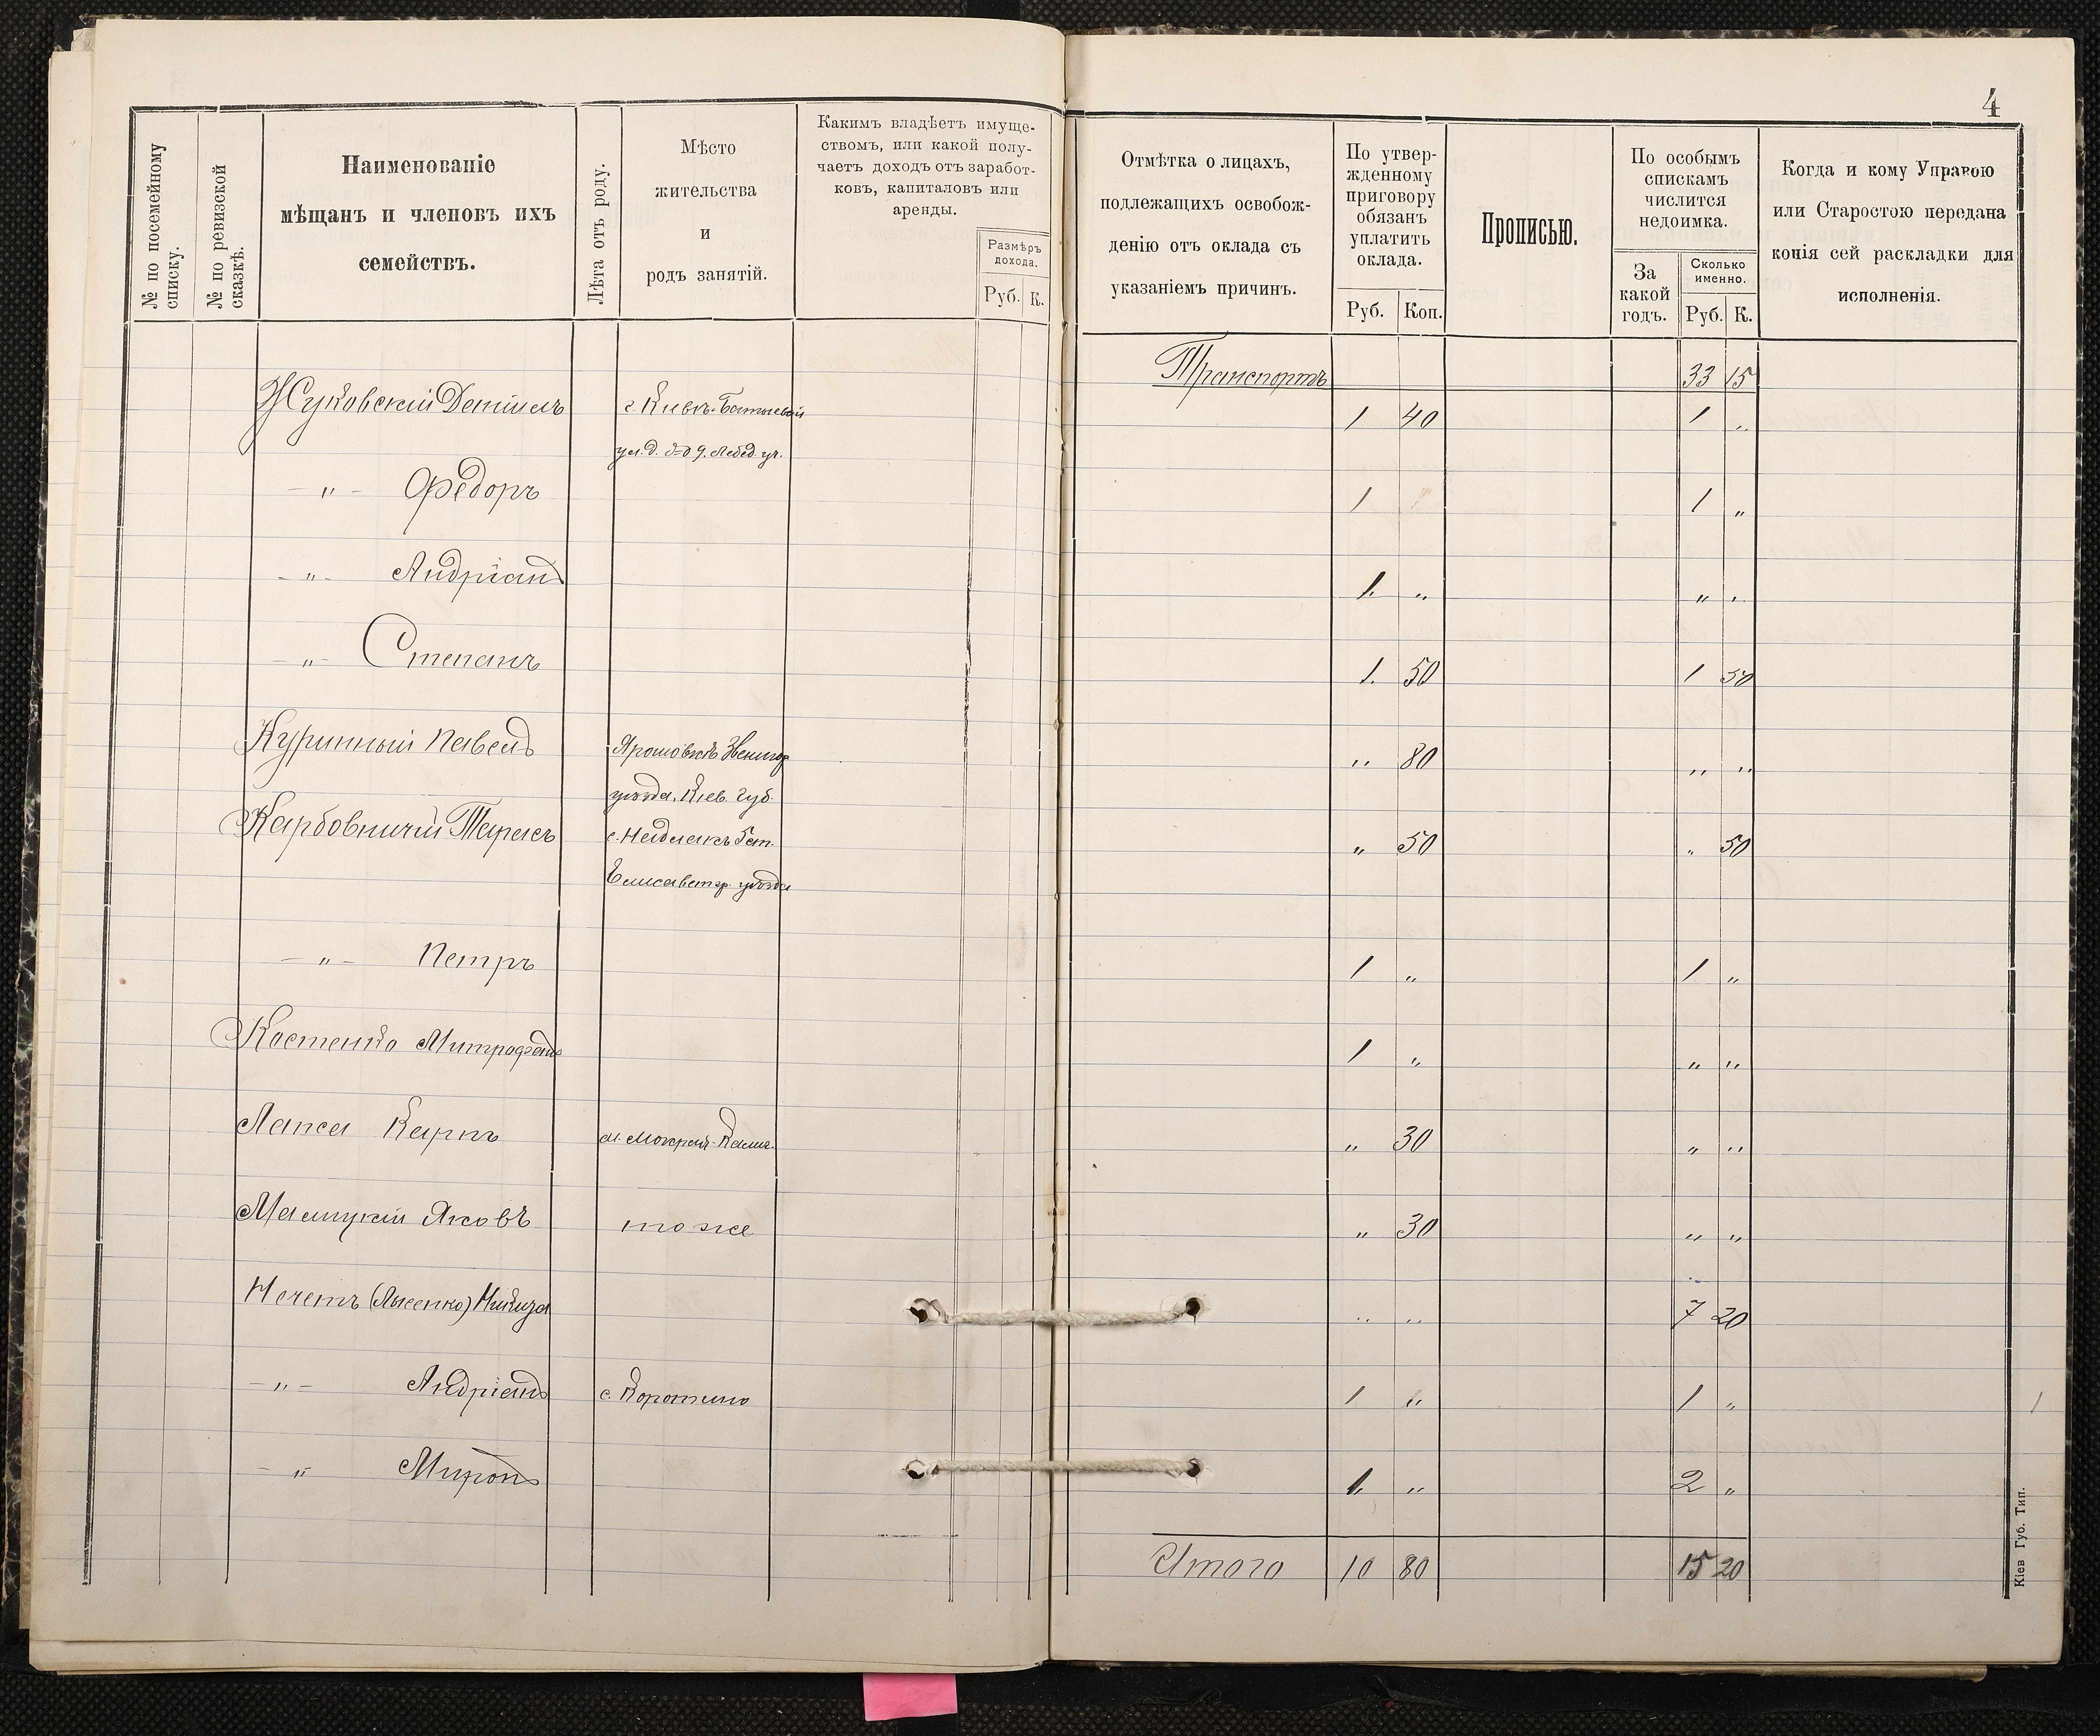 4
№ по посемейному
списку.
№ по ревизской
сказкѣ.
Наименованіе
мѣщанъ и членовъ ихъ
семействъ.
Лѣта отъ роду.
Мѣсто
жительства
и
родъ занятій.
Какимъ владѣетъ имуще-
ствомъ, или какой полу-
чаетъ доходъ отъ заработ-
ковъ, капиталовъ или
аренды.
Размѣръ
дохода.
Руб. К.
Отмѣтка о лицахъ,
подлежащихъ освобож-
денію отъ оклада съ
указаніемъ причинъ.
По утвер-
жденному
приговору
обязанъ
уплатить
оклада.
Руб. Коп.
Прописью.
По особымъ
спискамъ
числится
недоимка.
За
какой
годъ.
Сколько
именно.
Руб. К.
Когда и кому Управою
или Старостою передана
копія сей раскладки для
исполненія.
Транспортъ 33 15
Жуковскій Даніилъ г. Кіевъ 1 40 1 „
ул. д.
-„- Федоръ 1 1 „
-„- Андріанъ 1. „ „ „
-„- Степанъ 1. 50 1 50
Куринный Павелъ Ярошовка Звениг „ 80 „ „
уѣзда, Кіев. губ.
Карбовничій Тарасъ с. „ 50 „ 50
Елисаветгр. уѣзда
-„- Петръ 1 „ 1 „
Костенко Митрофанъ 1 „ „ „
Лапса Карпъ м. Мокрая-Калиг. „ 30 „ „
Малицкій Яковъ тоже „ 30 „ „
Нечетъ (Лысенко) Никита „ „ 7 20
-„- Андріанъ с. Коротино 1 „ 1 „
-„ Миронъ 1. „ 2 „
Итого 10 80 15 20
Кіев Губ. Тип.